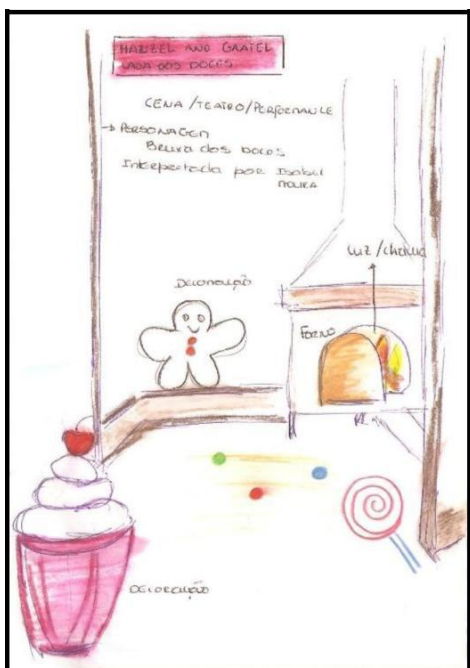 HANZEL AND GRATEL
CASA DOS DOCES
CENA/TEATRO/PERFORMANCE
→ PERSONAGEM
BRUXA dos DOCES
Interpretada por Isabel
MOURA
LUZ/CHAMA
DECORAÇÃO
FORNO
DECORAÇÃO